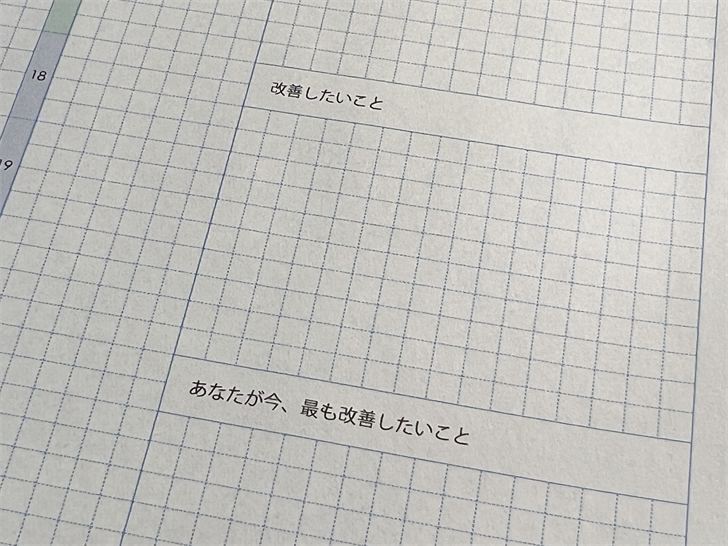 18
改善したいこと
19
あなたが今、最も改善したいこと